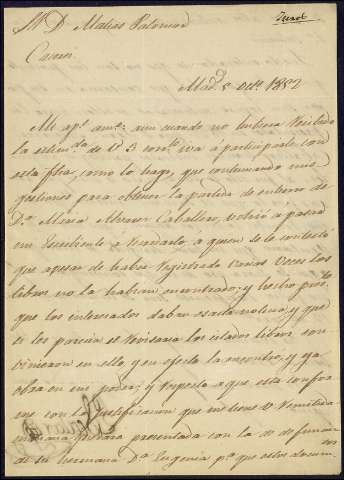 Sr. D. Matias Palomar
Casas
Mad. 8 oct. 1852
Mi ap. am.: aun cuando no hubiera recibido
la estim. de V 3 corr. iva a participarle con
esta fha, como lo hago, que continuando mis
gestiones para obtener la partida de entierro de
D. Maria Alvarez Caballero, volvio a pasar
mi a quien se le contestó
que apesar de haber registrado varias veces los
libros no la habian encontrado; y hecho
que los interesados daban esacta noticia, y que
si les parecia se revisaran los citados libros con
vinieron en ello y en efecto la encontró, y ya
obra en mi poder; y respecto a que está confor
me con la justificacion que me tiene V remitida
mañana quedará presentada con la de defuncion
de su hermana D. Eugenia p. que estos docum